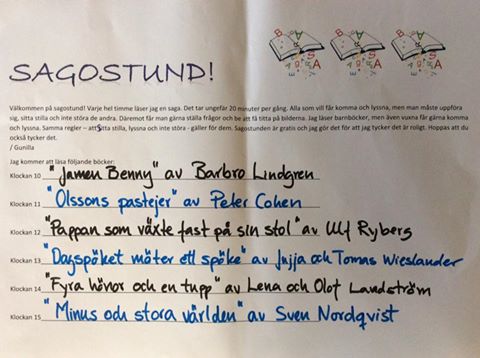 SAGOSTUND!
Välkommen på sagostund! Varje hel timme läser jag en saga. Det tar ungefär 20 minuter per gång. Alla som vill får komma och lyssna, men man måste uppföra
sig, sitta stilla och inte störa de andra. Däremot får man gärna ställa frågor och be att få titta på bilderna. Jag läser barnböcker, men även vuxna får gärna komma
och lyssna. Samma regler – att sitta stilla, lyssna och inte störa - gäller för dem. Sagostunden är gratis och jag gör det för att jag tycker det är roligt. Hoppas att du
också tycker det.
/ Gunilla
Jag kommer att läsa följande böcker:
Klockan 10 "Jamen Benny" av Barbro Lindgren
Klockan 11 "Olssons pastejer" av Peter Cohen
Klockan 12 "Pappan som växte fast på sin stol" av Ulf Ryberg
Klockan 13 "Dagspöket möter ett spöke" av Jujja och Tomas Wieslander
Klockan 14 "Fyra hönor och en tupp" av Lena och Olof Landström
Klockan 15 "Minus och stora världen" av Sven Nordqvist